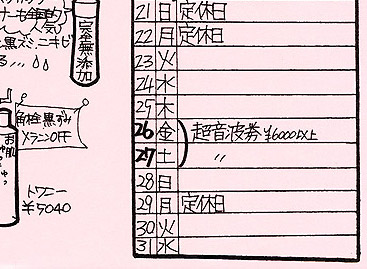 ナーも全国的
人気
黒ズミ、ニキビ
る…
完全無添加
角栓 黒ずみ
メラニンOFF
お肌
トワニー
¥5040
21 日 定休日
22 月 定休日
23 火
24 水
25 木
26 金 超音波券 ¥6000以上
27 土 〃
28 日
29 月 定休日
30 火
31 水